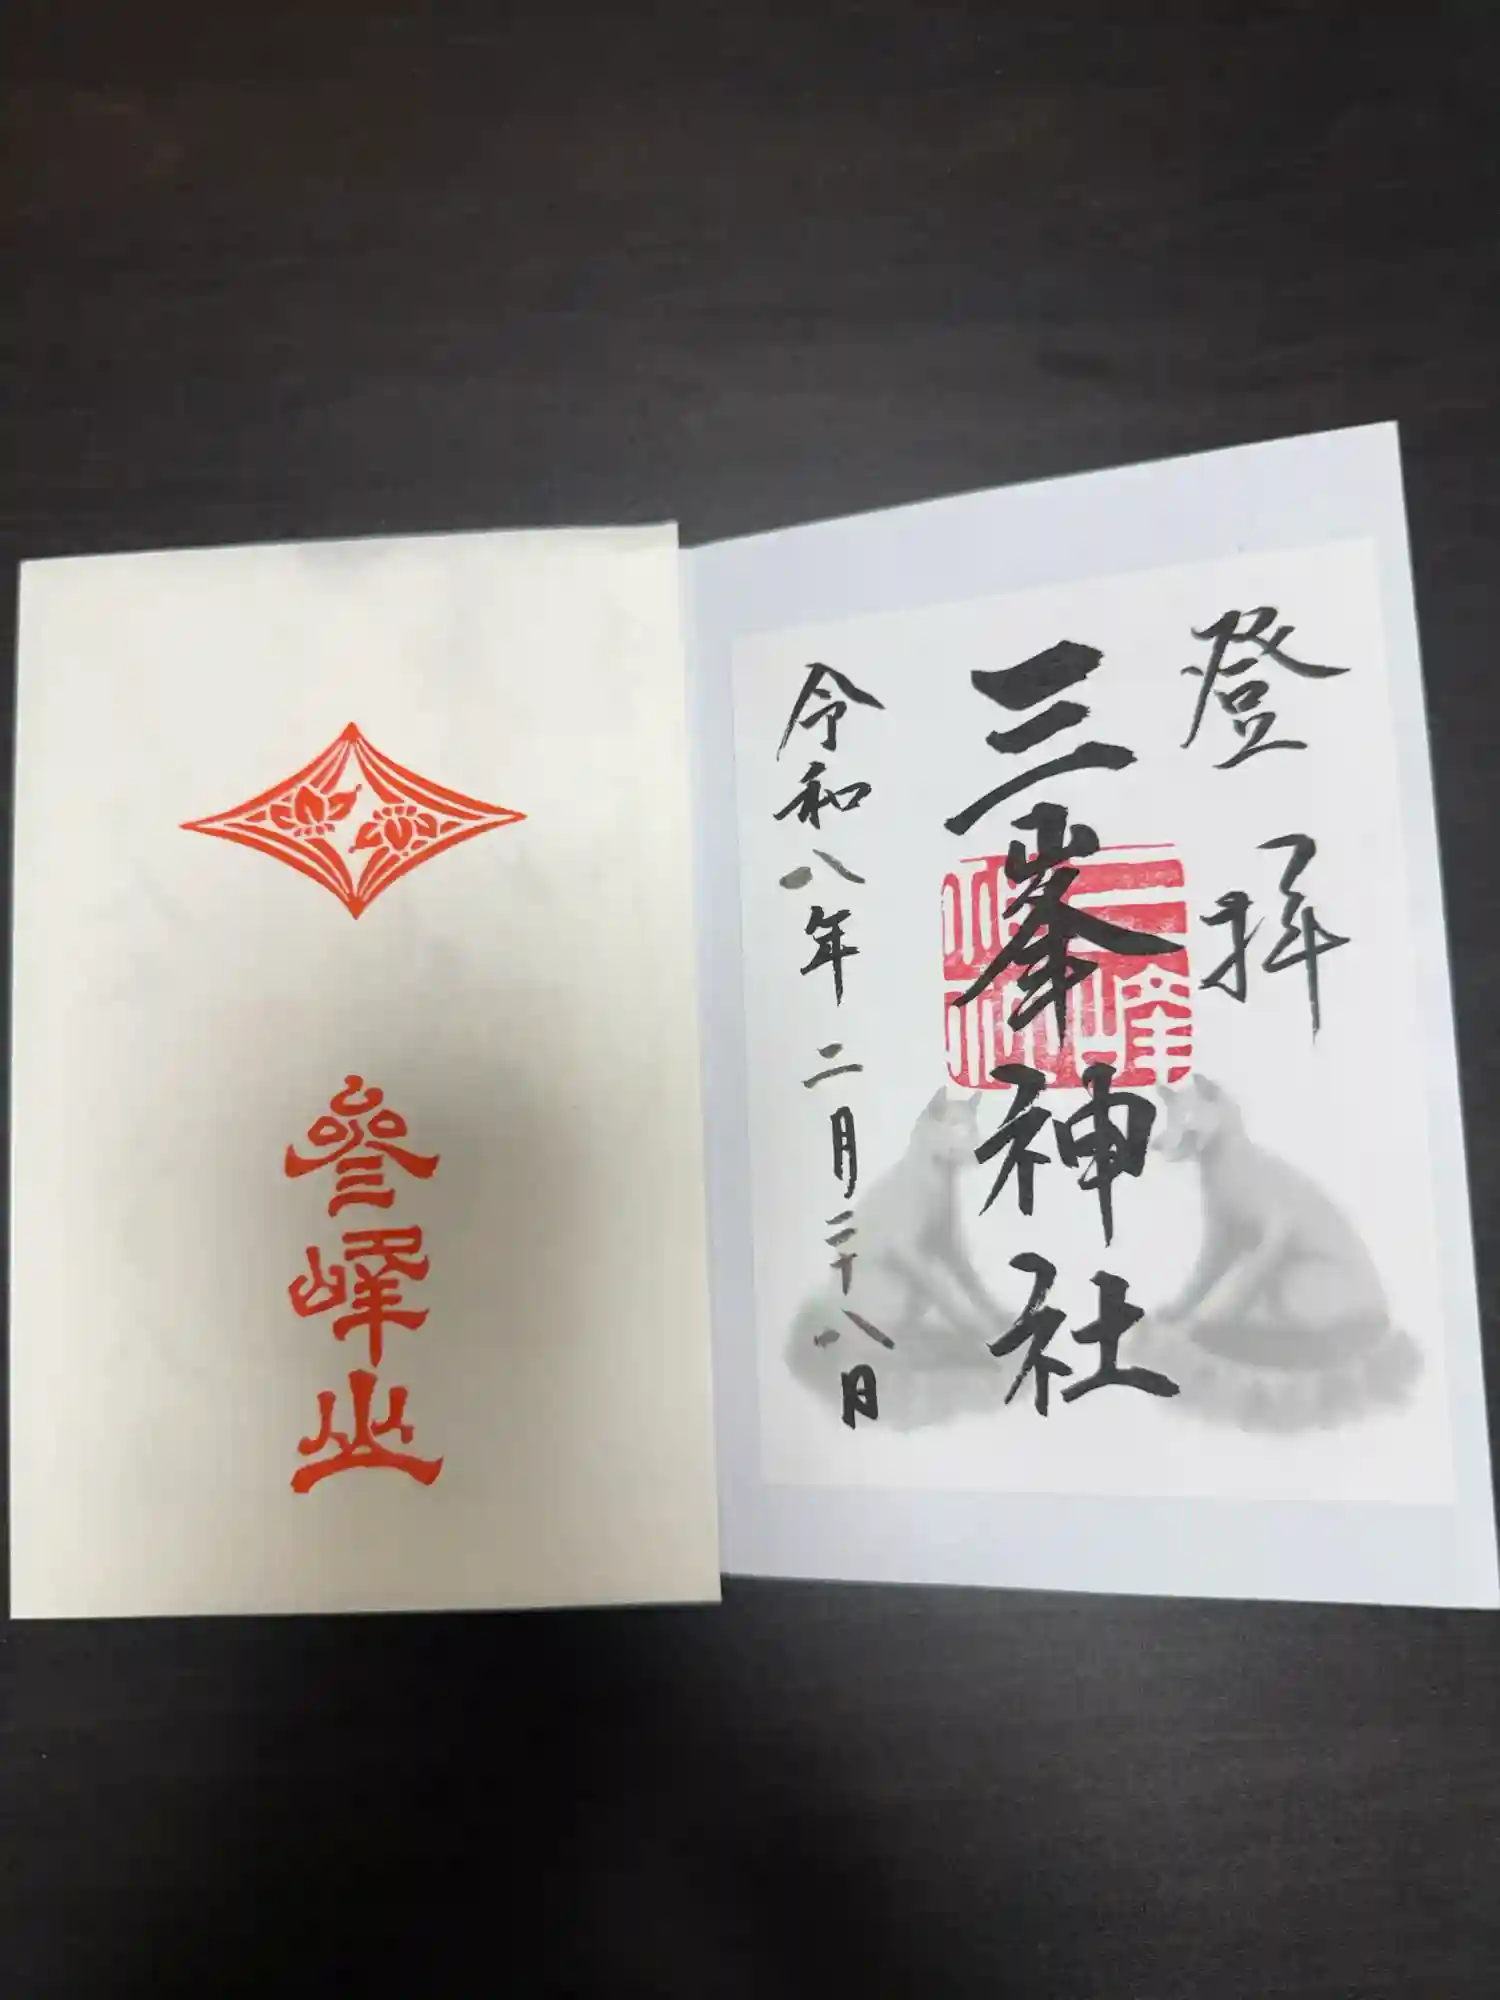 登拝
三峯神社
令和八年二月二十八日
三峰
參峰山